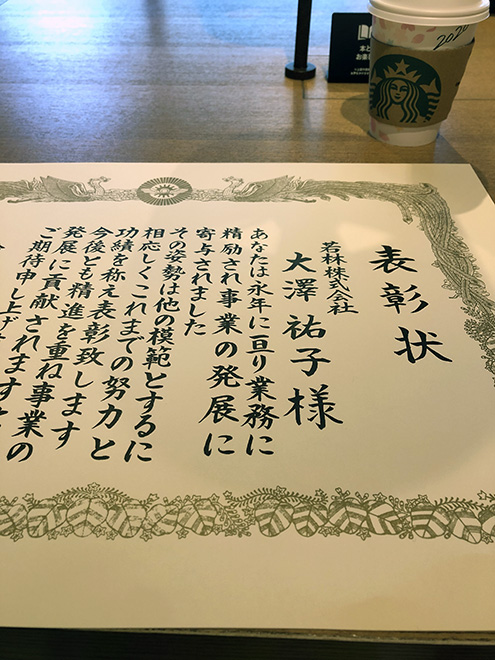 表彰状
若林株式会社
大澤祐子様
あなたは永年に亘り業務に
精励され事業の発展に
寄与されました
その姿勢は他の模範とするに
相応しくこれまでの努力と
功績を称え表彰致します
今後とも精進を重ね事業の
発展に貢献されますよう
ご期待申し上げます
2020